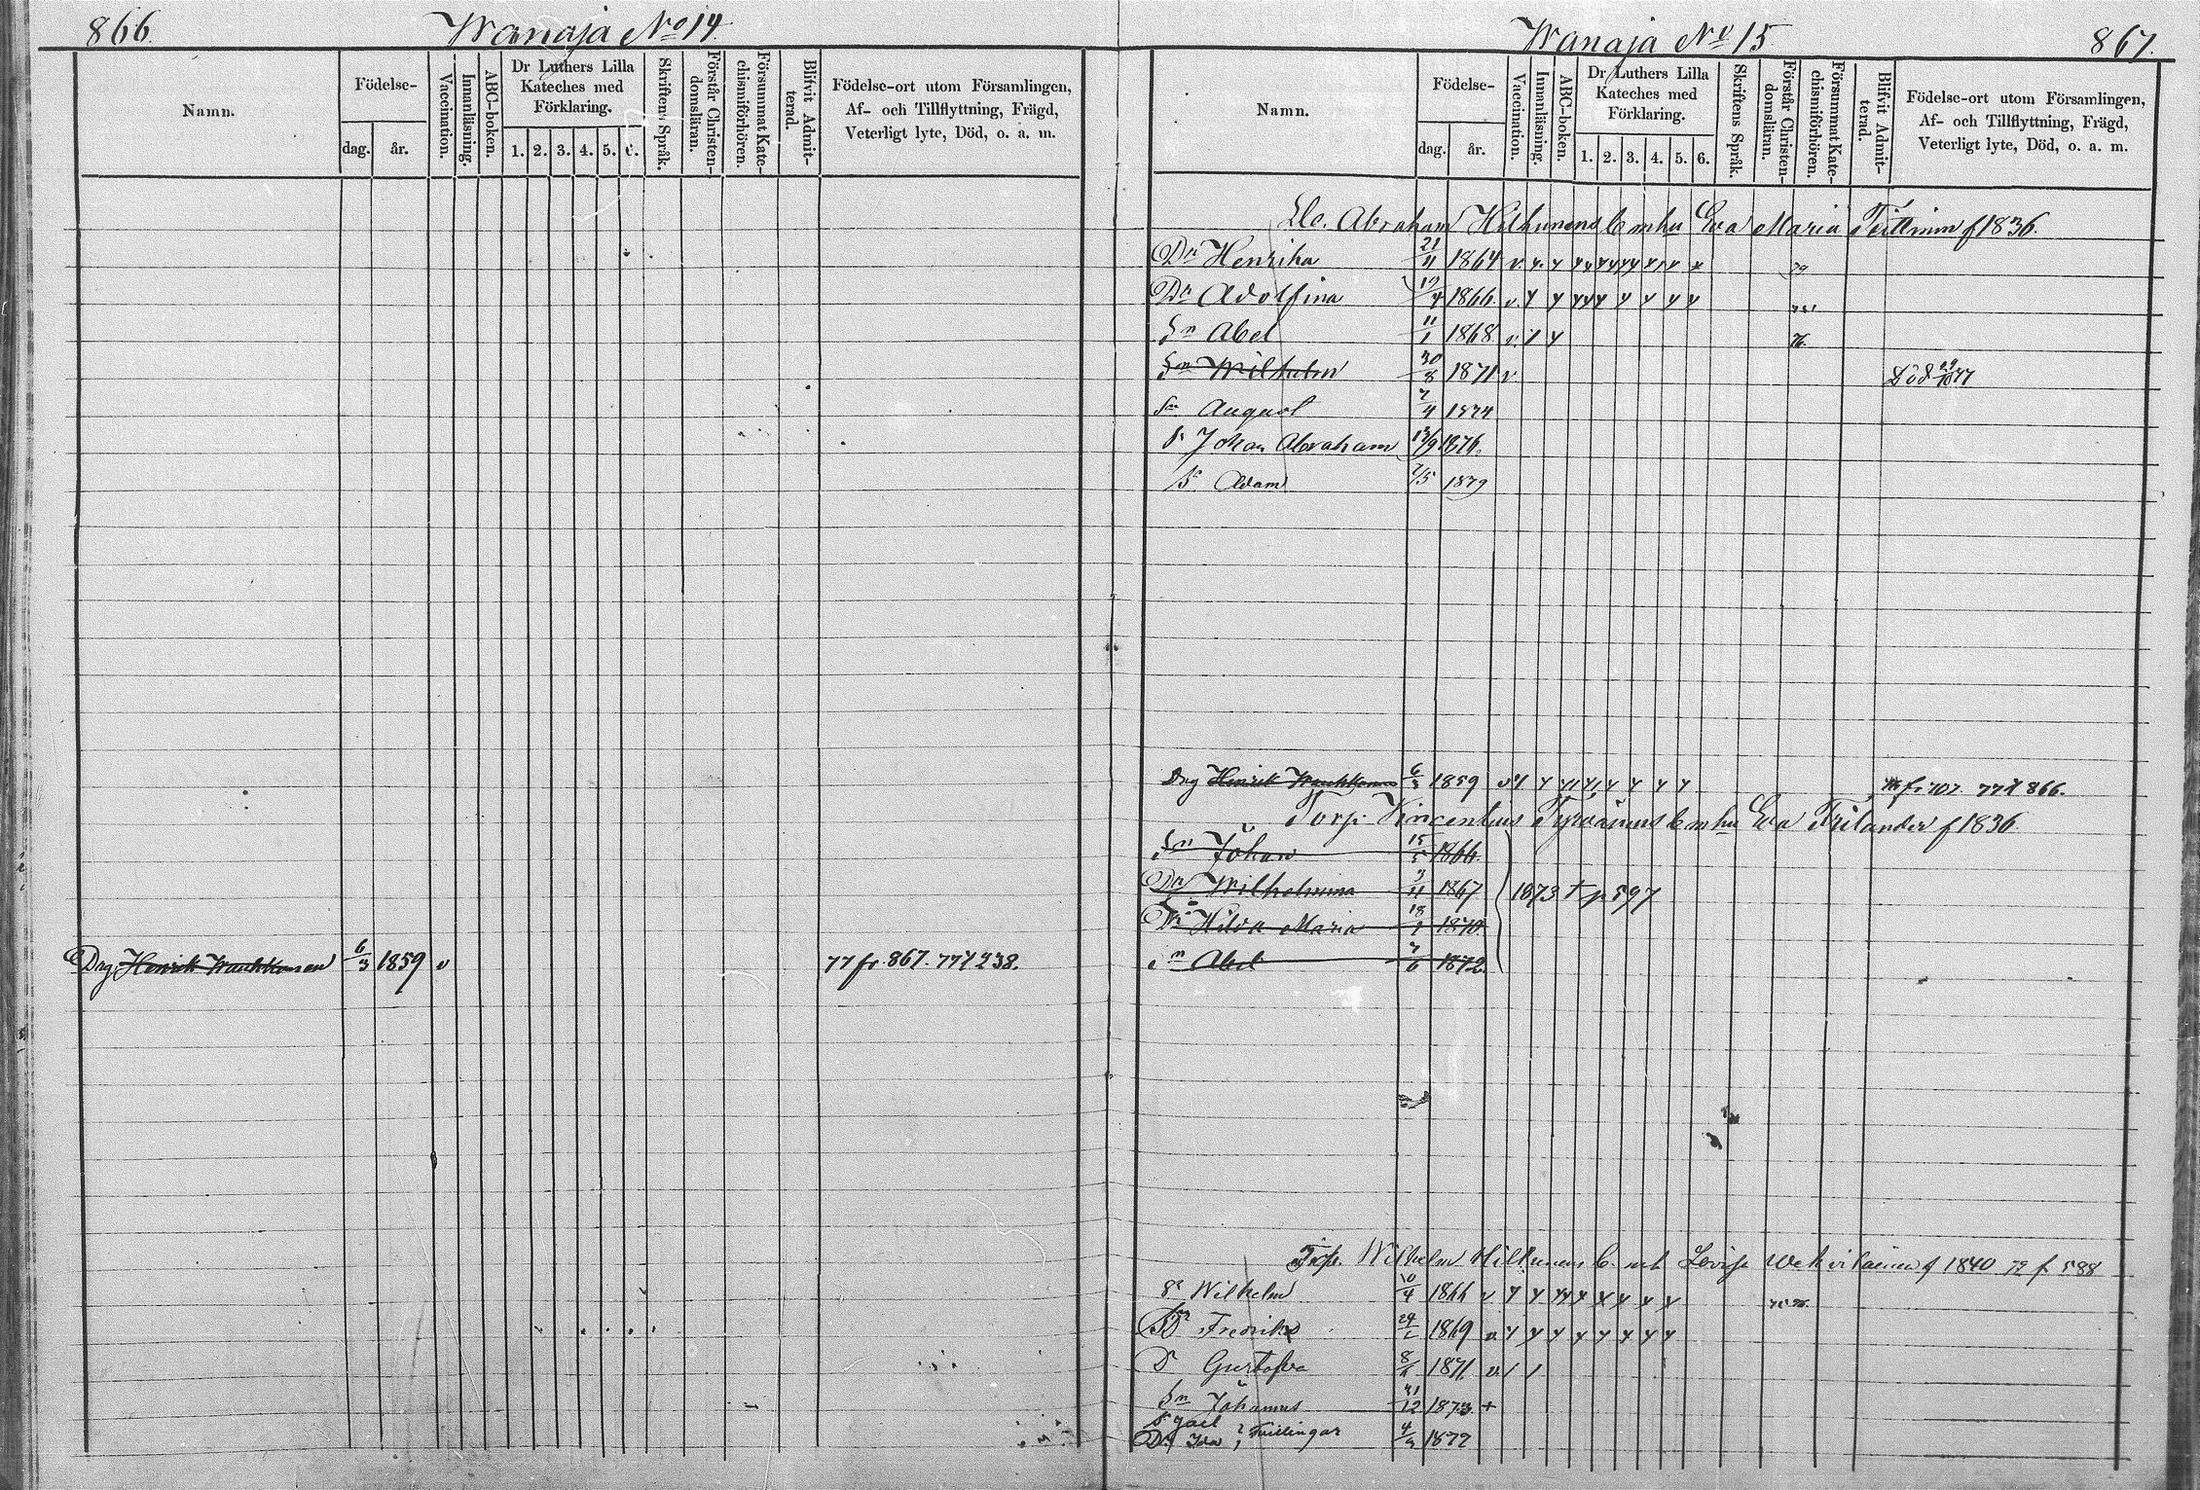 866.
Wanaja No 14.
Namn.
Födelse-
dag.
år.
Vaccination.
Innanläsning.
ABC-boken.
Dr Luthers Lilla
Kateches med
Förklaring.
1. 2. 3. 4. 5. 6.
Skriftens Språk.
Förstår Christen-
domsläran.
Försummat Kate-
chismiförhören.
Blifvit Admit-
terad.
Födelse-ort utom Församlingen,
Af- och Tillflyttning, Frägd,
Veterligt lyte, Död, o. a. m.
Drg Henrik 6/3 1859 v 77 fr. 867. 77 t 238.
Wanaja No 15
867.
Namn.
Födelse-
dag.
år.
Vaccination.
Innanläsning.
ABC-boken.
Dr Luthers Lilla
Kateches med
Förklaring.
1. 2. 3. 4. 5. 6.
Skriftens Språk.
Förstår Christen-
domsläran.
Försummat Kate-
chismiförhören.
Blifvit Admit-
terad.
Födelse-ort utom Församlingen,
Af- och Tillflyttning, Frägd,
Veterligt lyte, Död, o. a. m.
Abraham Hilthunens Enka Eva Maria f 1836.
Dr Henrika 21/11 1864
Dr Adolfina 19/4 1866
Sn Abel 11/1 1868
Sn Wilhelm 30/8 1871 v Död 77
Sn August 7/4 1874
S. Johan Abraham 13/9 1876.
Sn Adam 2/5 1879
Drg Henrik 6/3 1859 fr 707. 77 t 866.
Torp. Vincentius Enka Eva Frilander f 1836
Sn Johan 15/5 1866
Dr Wilhelmina 3/11 1867 1873 t p 597
Dr Hilda Maria 18/1 1870
Sn Abel 7/6 1872
Torp. Wilhelm f 1840 72 f 588
Sn Wilhelm 10/4 1866
Fredrika 1869
D Gustafva 1871
Sn Johannes 12 1873 +
S Joel
Dr Ida Tvillingar 1877